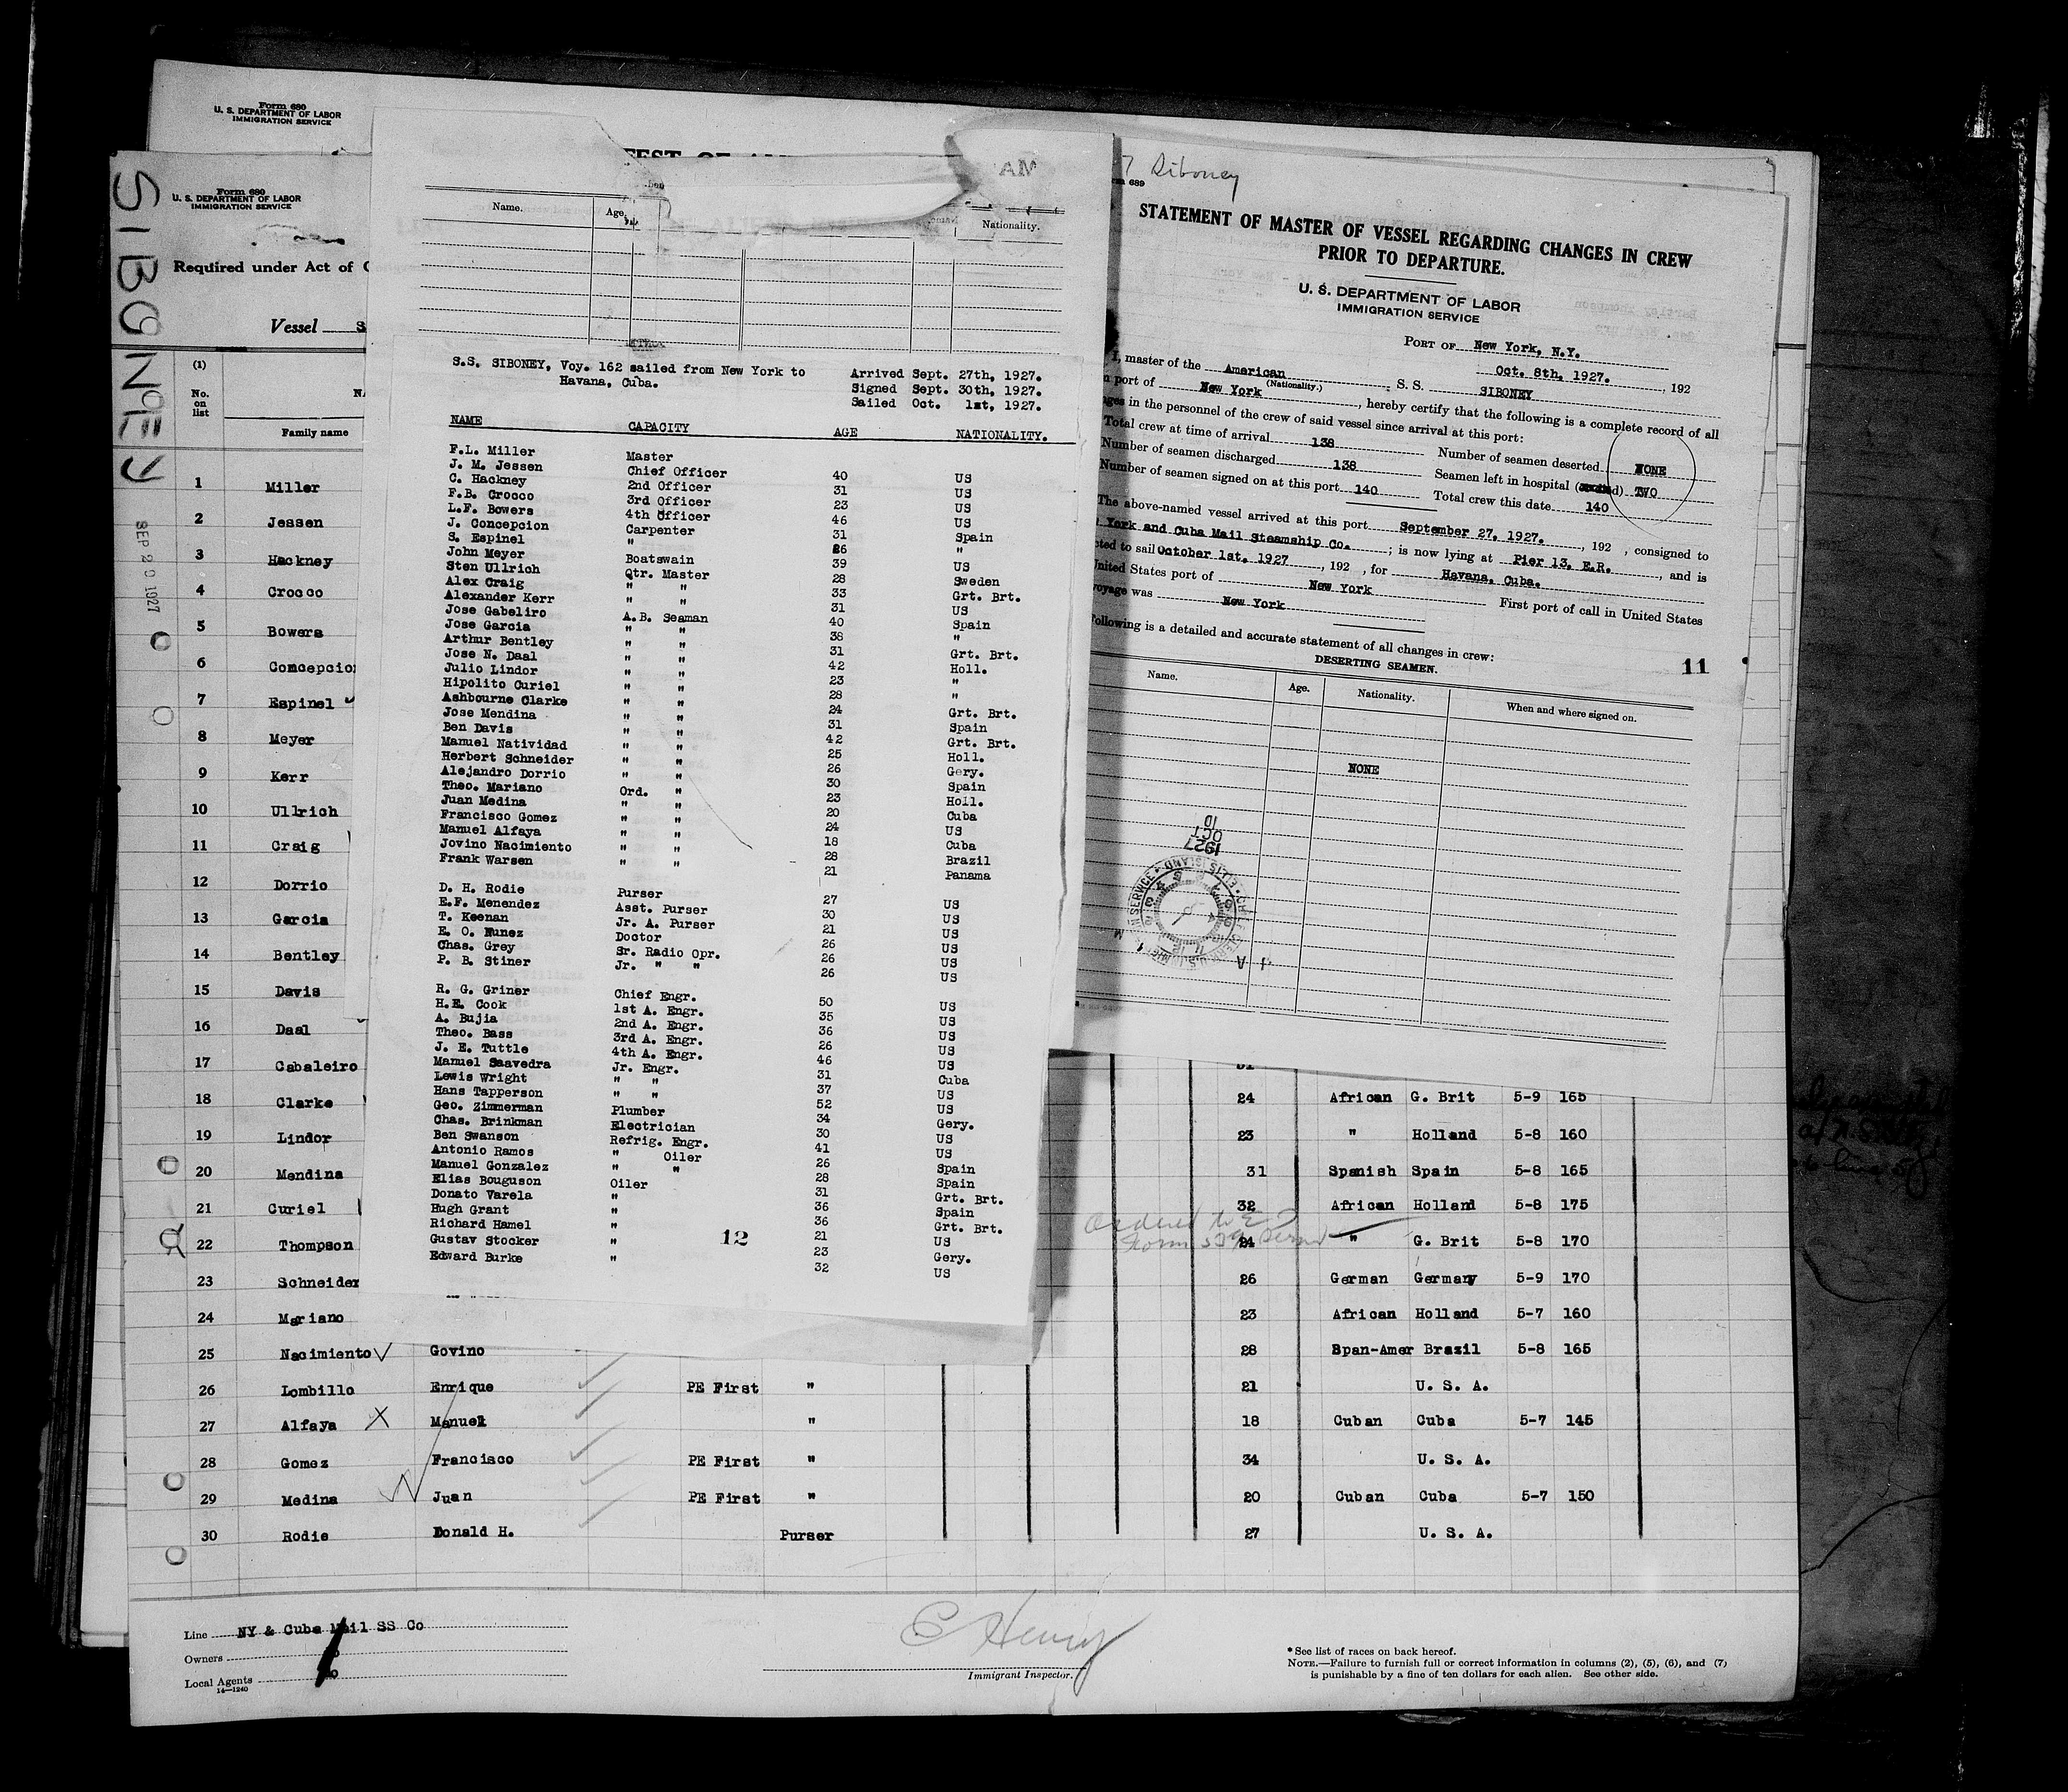 Form 680
U. S. DEPARTMENT OF LABOR
IMMIGRATION SERVICE
SIBONEY
SEP 20 1927
Form 680
U. S. DEPARTMENT OF LABOR
IMMIGRATION SERVICE
Required under Act of
Vessel
(1)
No. on list
Family name
Name. Age. Nationality.
AM
S.S. SIBONEY, Voy. 162 sailed from New York to Havana, Cuba.
Arrived Sept. 27th, 1927.
Signed Sept. 30th, 1927.
Sailed Oct. 1st, 1927.
NAME CAPACITY AGE NATIONALITY.
F.L. Miller Master
J. M. Jessen Chief Officer 40 US
C. Hackney 2nd Officer 31 US
F.B. Crocco 3rd Officer 23 US
L.F. Bowers 4th Officer 46 US
J. Concepcion Carpenter 31 Spain
S. Espinel " 26 "
John Meyer Boatswain 39 US
Sten Ullrich Qtr. Master 28 Sweden
Alex Craig " " 33 Grt. Brt.
Alexander Kerr " " 31 US
Jose Gabeliro A.B. Seaman 40 Spain
Jose Garcia " " 38 "
Arthur Bentley " " 31 Grt. Brt.
Jose N. Daal " " 42 Holl.
Julio Lindor " " 23 "
Hipolito Curiel " " 28 "
Ashbourne Clarke " " 24 Grt. Brt.
Jose Mendina " " 31 Spain
Ben Davis " " 42 Grt. Brt.
Manuel Natividad " " 25 Holl.
Herbert Schneider " " 26 Gery.
Alejandro Dorrio " " 30 Spain
Theo. Mariano Ord. " 23 Holl.
Juan Medina " " 20 Cuba
Francisco Gomez " " 24 US
Manuel Alfaya " " 18 Cuba
Jovino Nacimiento " " 28 Brazil
Frank Warsen " " 21 Panama
D. H. Rodie Purser 27 US
E.F. Menendez Asst. Purser 30 US
T. Keenan Jr. A. Purser 21 US
E. O. Nunez Doctor 26 US
Chas. Grey Sr. Radio Opr. 26 US
P. B. Stiner Jr. " " 26 US
R. G. Griner Chief Engr. 50 US
H.E. Cook 1st A. Engr. 35 US
A. Bujia 2nd A. Engr. 36 US
Theo. Bass 3rd A. Engr. 26 US
J. E. Tuttle 4th A. Engr. 46 US
Manuel Saavedra Jr. Engr. 31 Cuba
Lewis Wright " " 37 US
Hans Tapperson " " 52 US
Geo. Zimmerman Plumber 34 Gery.
Chas. Brinkman Electrician 30 US
Ben Swanson Refrig. Engr. 41 US
Antonio Ramos " Oiler 26 Spain
Manuel Gonzalez " " 28 Spain
Elias Bouguson Oiler 31 Grt. Brt.
Donato Varela " 36 Spain
Hugh Grant " 36 Grt. Brt.
Richard Hamel " 21 US
Gustav Stocker " 23 Gery.
Edward Burke " 32 US
12
Siboney
STATEMENT OF MASTER OF VESSEL REGARDING CHANGES IN CREW
PRIOR TO DEPARTURE.
U. S. DEPARTMENT OF LABOR
IMMIGRATION SERVICE
PORT OF New York, N.Y.
Oct. 8th, 1927. , 192
I, master of the American S. S. SIBONEY
(Nationality.)
port of New York , hereby certify that the following is a complete record of all
in the personnel of the crew of said vessel since arrival at this port:
Total crew at time of arrival 138 Number of seamen deserted NONE
Number of seamen discharged 138 Seamen left in hospital TWO
Number of seamen signed on at this port 140 Total crew this date 140
The above-named vessel arrived at this port September 27, 1927. , 192 , consigned to
York and Cuba Mail Steamship Co. ; is now lying at Pier 13, E.R. , and is
to sail October 1st. 1927 , 192 , for Havana, Cuba.
United States port of New York First port of call in United States
voyage was New York
following is a detailed and accurate statement of all changes in crew:
DESERTING SEAMEN.
11
Name. Age. Nationality. When and where signed on.
NONE
1927
OCT
10
1 Miller
2 Jessen
3 Hackney
4 Crocco
5 Bowers
6 Concepcio
7 Espinel
8 Meyer
9 Kerr
10 Ullrich
11 Craig
12 Dorrio
13 Garcia
14 Bentley
15 Davis
16 Daal
17 Cabaleiro
18 Clarke 24 African G. Brit 5-9 165
19 Lindor 23 " Holland 5-8 160
20 Mendina 31 Spanish Spain 5-8 165
21 Curiel 32 African Holland 5-8 175
22 Thompson 24 " G. Brit 5-8 170
23 Schneider 26 German Germany 5-9 170
24 Mariano 23 African Holland 5-7 160
25 Nacimiento Govino 28 Span-Amer Brazil 5-8 165
26 Lombillo Enrique PE First " 21 U. S. A.
27 Alfaya X Manuel " 18 Cuban Cuba 5-7 145
28 Gomez Francisco PE First " 34 U. S. A.
29 Medina Juan PE First " 20 Cuban Cuba 5-7 150
30 Rodie Donald H. Purser 27 U. S. A.
Line NY & Cuba Mail SS Co
Owners
Local Agents
14—1240
E Henry
Immigrant Inspector.
* See list of races on back hereof.
NOTE.—Failure to furnish full or correct information in columns (2), (5), (6), and (7)
is punishable by a fine of ten dollars for each alien. See other side.